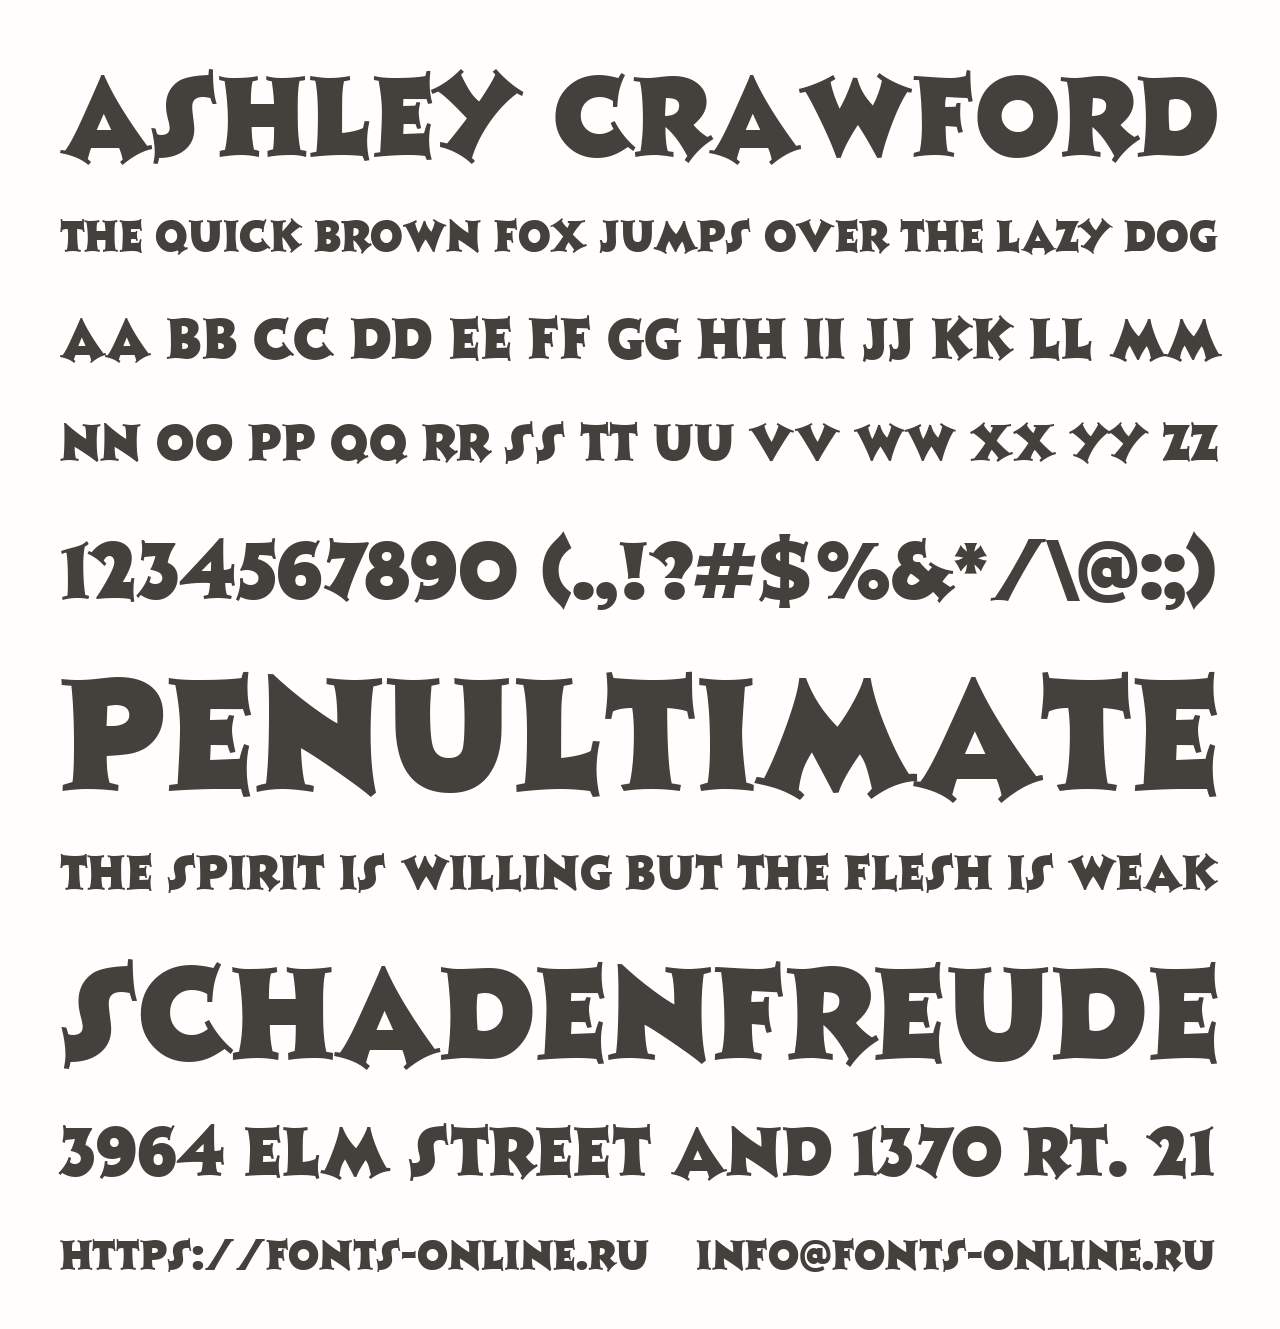 ASHLEY CRAWFORD
THE QUICK BROWN FOX JUMPS OVER THE LAZY DOG
AA BB CC DD EE FF GG HH II JJ KK LL MM
NN OO PP QQ RR SS TT UU VV WW XX YY ZZ
1234567890 (.,!?#$%&*/\@:;)
PENULTIMATE
THE SPIRIT IS WILLING BUT THE FLESH IS WEAK
SCHADENFREUDE
3964 ELM STREET AND 1370 RT. 21
HTTPS://FONTS-ONLINE.RU INFO@FONTS-ONLINE.RU